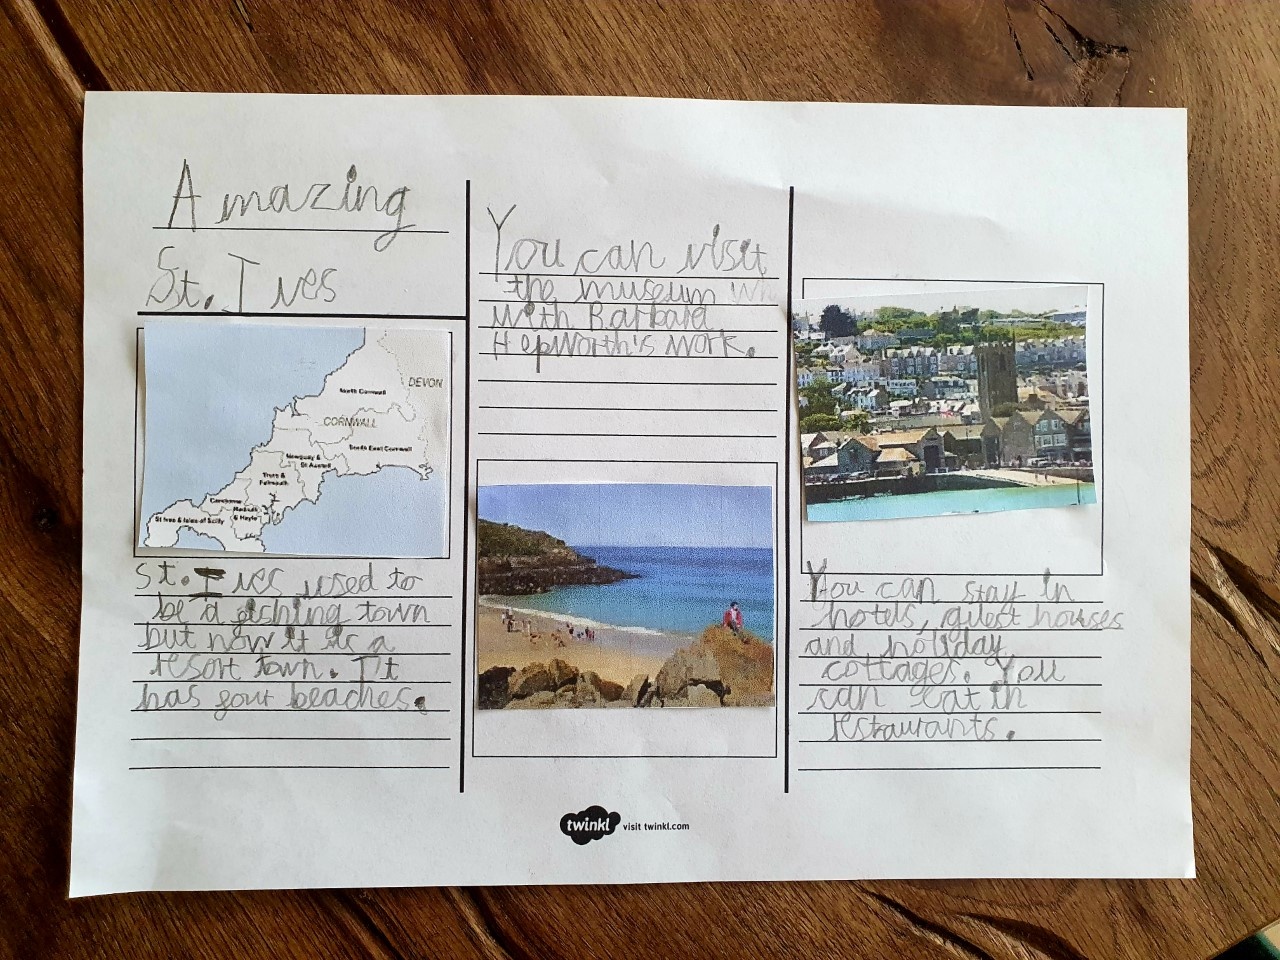 Amazing
St. Ives
DEVON
North Cornwall
CORNWALL
South East Cornwall
Newquay &
St Austell
Truro &
Falmouth
Camborne
Redruth
& Hayle
St Ives & Isles of Scilly
St. Ives used to
be a fishing town
but now it is a
resort town. It
has four beaches.
You can visit
the museum
with Barbara
Hepworth's work.
You can stay in
hotels, guest houses
and holiday
cottages. You
can eat in
restaurants.
twinkl visit twinkl.com